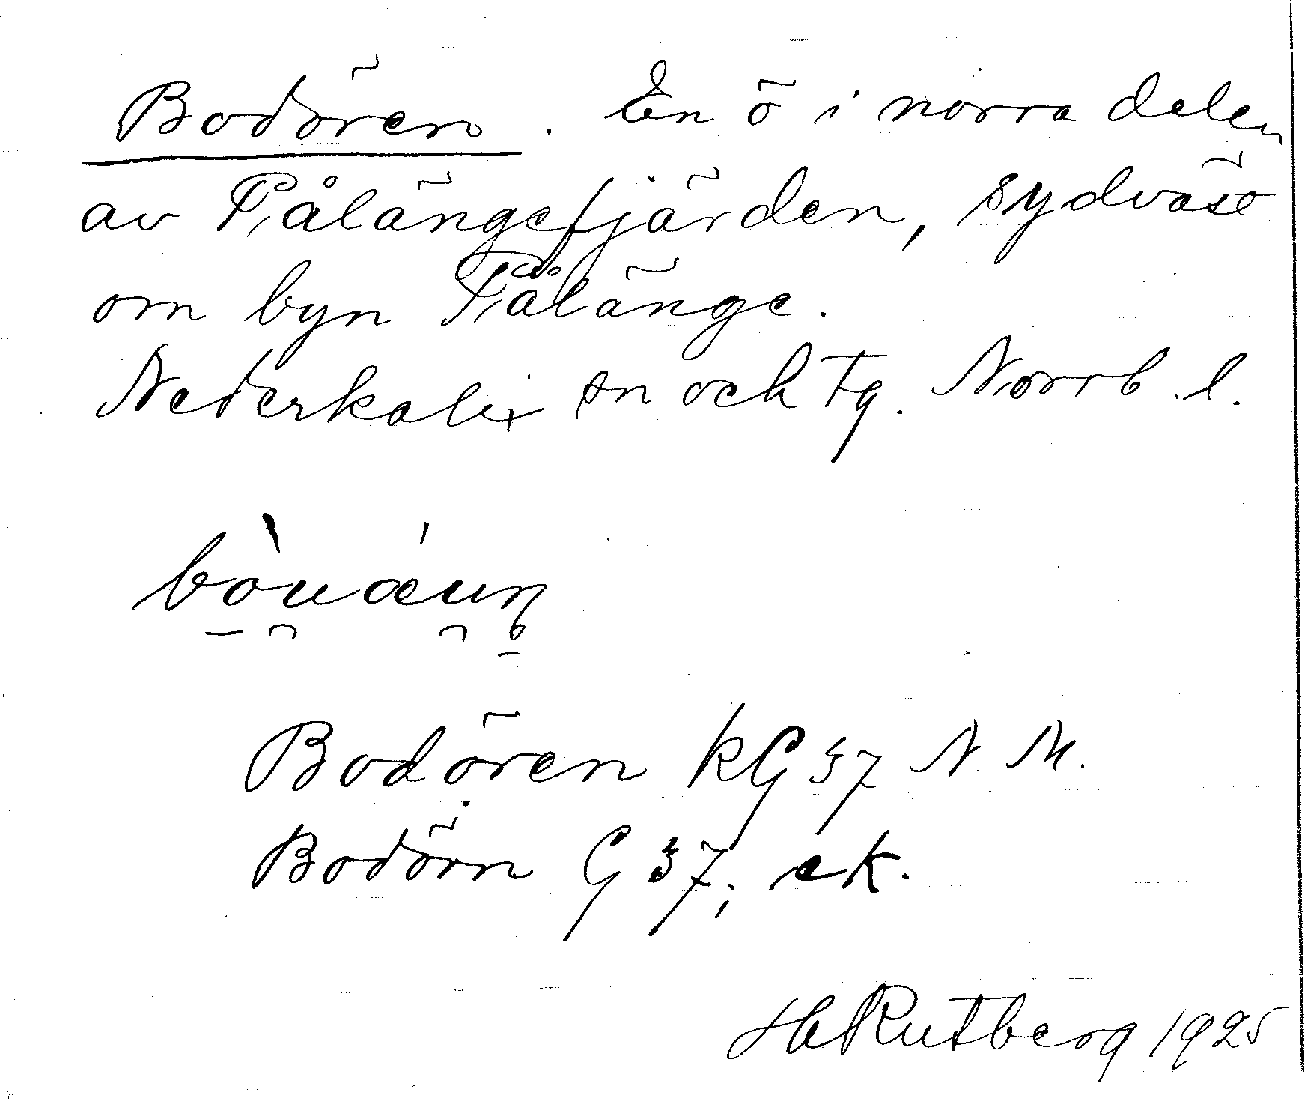 Bodören. En ö i norra delen
av Pålängefjärden, sydväst
om byn Pålänge.
Nederkalix sn och tg. Norrb. l.
Bodören kG 37 N. M.
Bodörn G 37; ek.
H Rutberg 1925